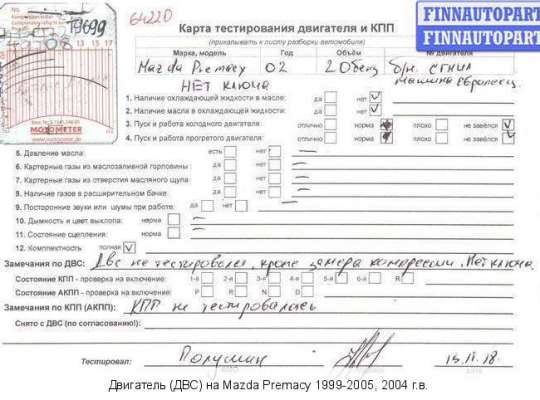 64220
Карта тестирования двигателя и КПП
(прикалывать к листу разборки автомобиля)
FINNAUTOPART
FINNAUTOPART
T9699
13 14 15 16 17
MOTOMETER
www.motometer.de
Марка, модель Год Объём № двигателя
Mazda Premacy 02 2.0бенз б/н. сгнил
НЕТ КЛЮЧА машина Европеец
1. Наличие охлаждающей жидкости в масле: да нет V
2. Наличие масла в охлаждающей жидкости: да нет V
3. Пуск и работа холодного двигателя: отлично норма плохо не завёлся V
4. Пуск и работа прогретого двигателя: отлично норма плохо не завёлся V
5. Давление масла: есть нет —
6. Картерные газы из маслозаливной горловины: да нет —
7. Картерные газы из отверстия масляного щупа: да нет —
8. Наличие газов в расширительном бачке: да нет —
9. Посторонние звуки или шумы при работе: да нет —
10. Дымность и цвет выхлопа: норма —
11. Состояние сцепления: норма —
12. Комплектность: полная V
Замечания по ДВС: Двс не тестировался, кроме замера компрессии. Нет ключа
Состояние КПП - проверка на включение: 1-я 2-я 3-я 4-я 5-я 6-я R
Состояние АКПП - проверка на включение: P R N D
Замечания по КПП (АКПП): КПП не тестировалась
Снято с ДВС (по согласованию!):
Тестировал: Полушин 15.11.18
Двигатель (ДВС) на Mazda Premacy 1999-2005, 2004 г.в.